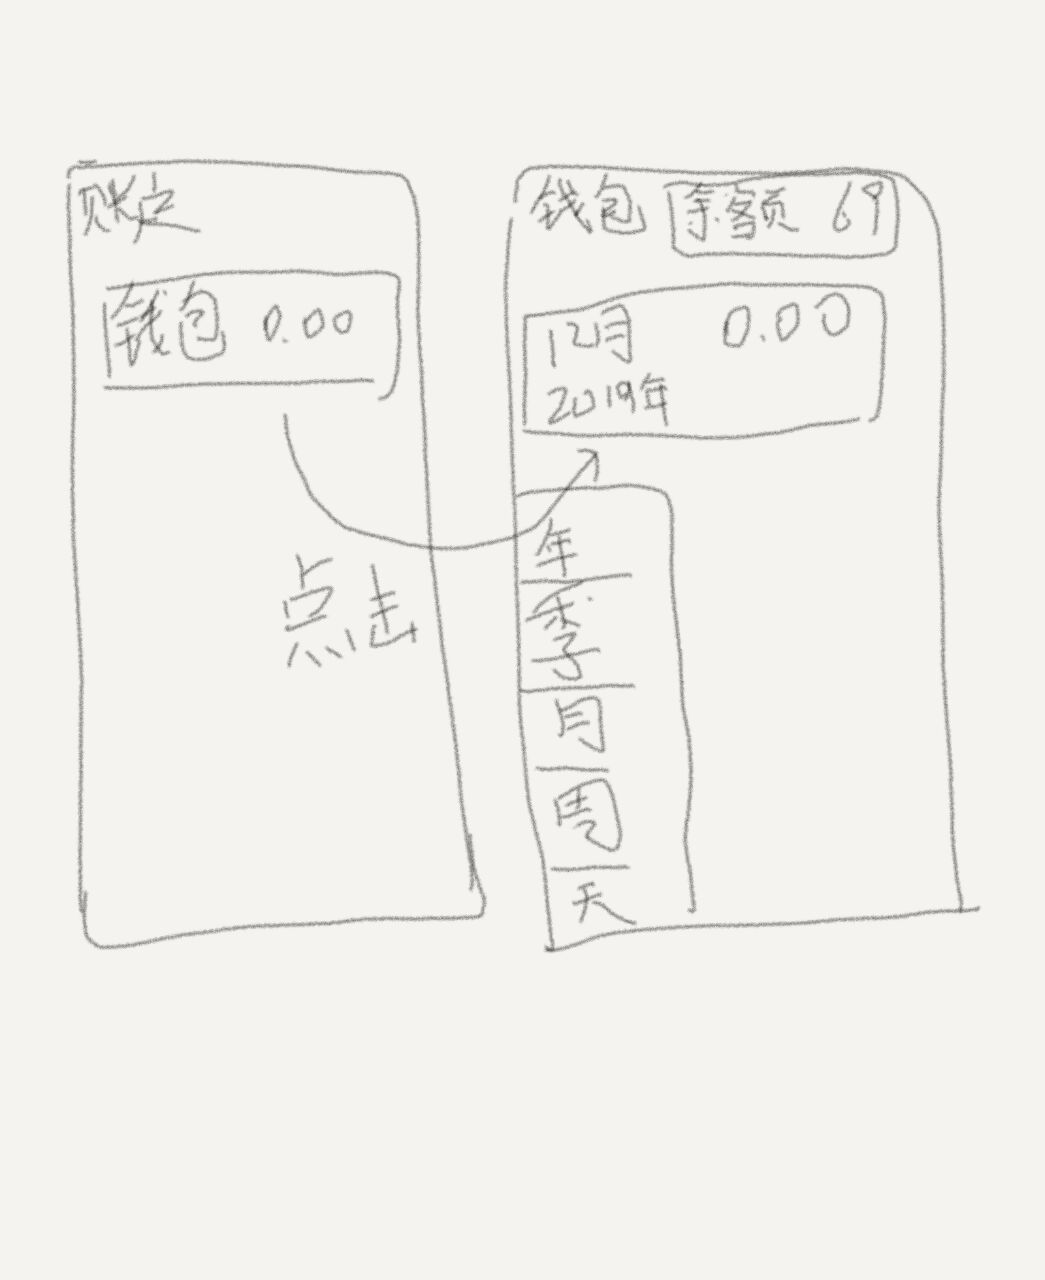 账户
钱包 0.00
点击
钱包 余额 69
12月 0.00
2019年
年
季
月
周
天